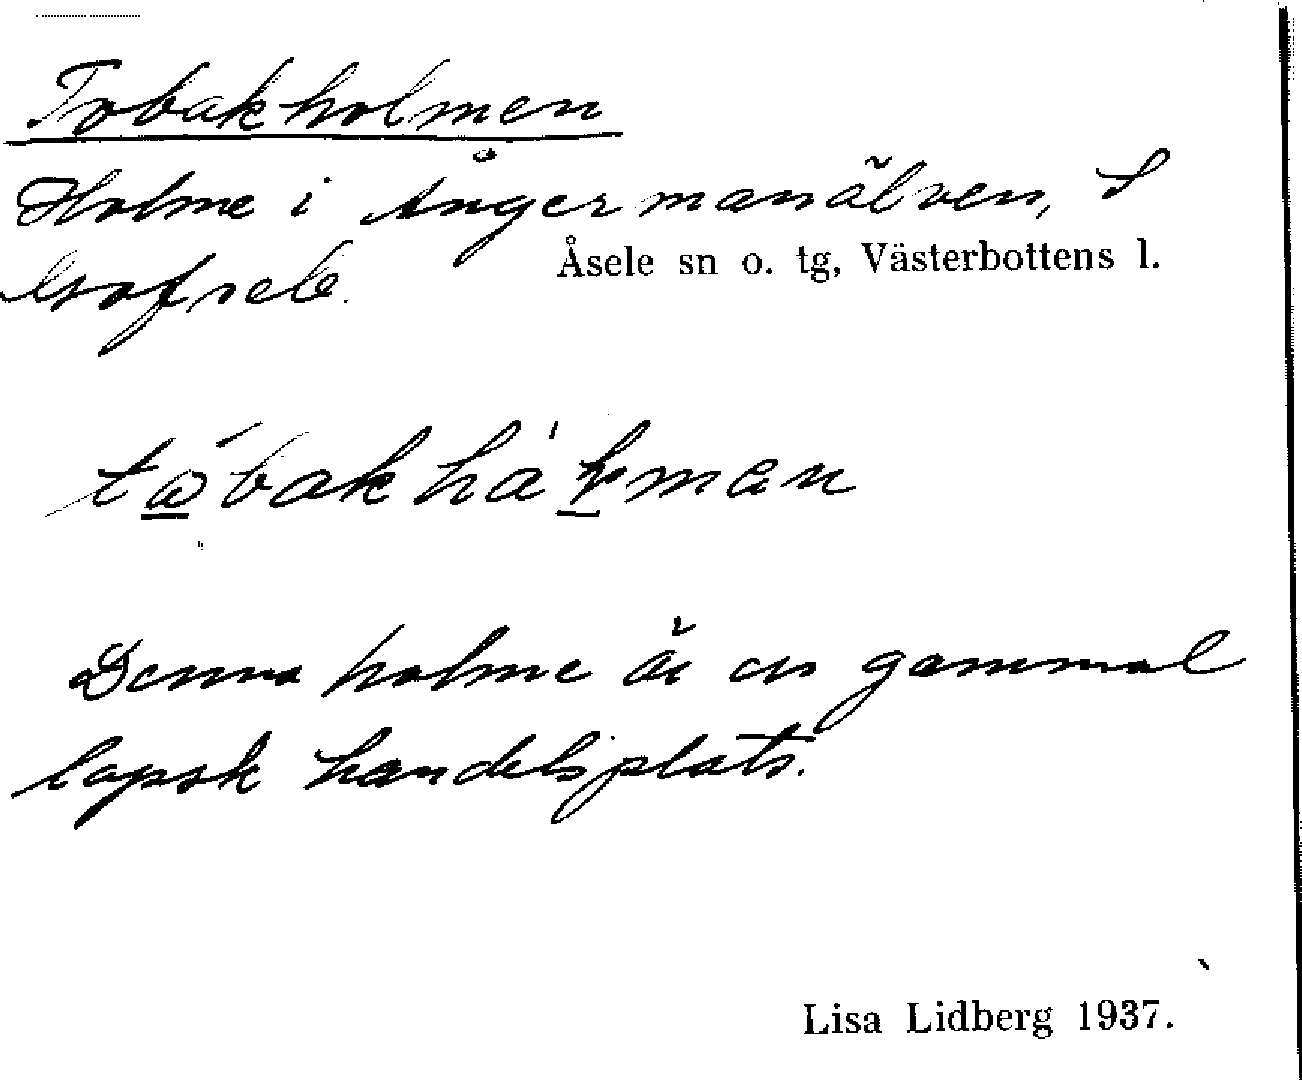 Tobakholmen
Holme i Ångermanälven, S
Gafsele.
Åsele sn o. tg, Västerbottens l.
Denna holme är en gammal
lapsk handelsplats.
Lisa Lidberg 1937.